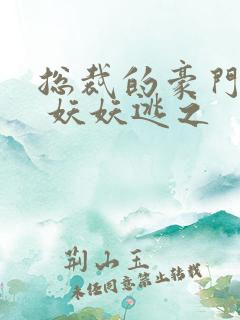 总裁的豪门
妖妖逃之
荆山玉
未经同意禁止转载